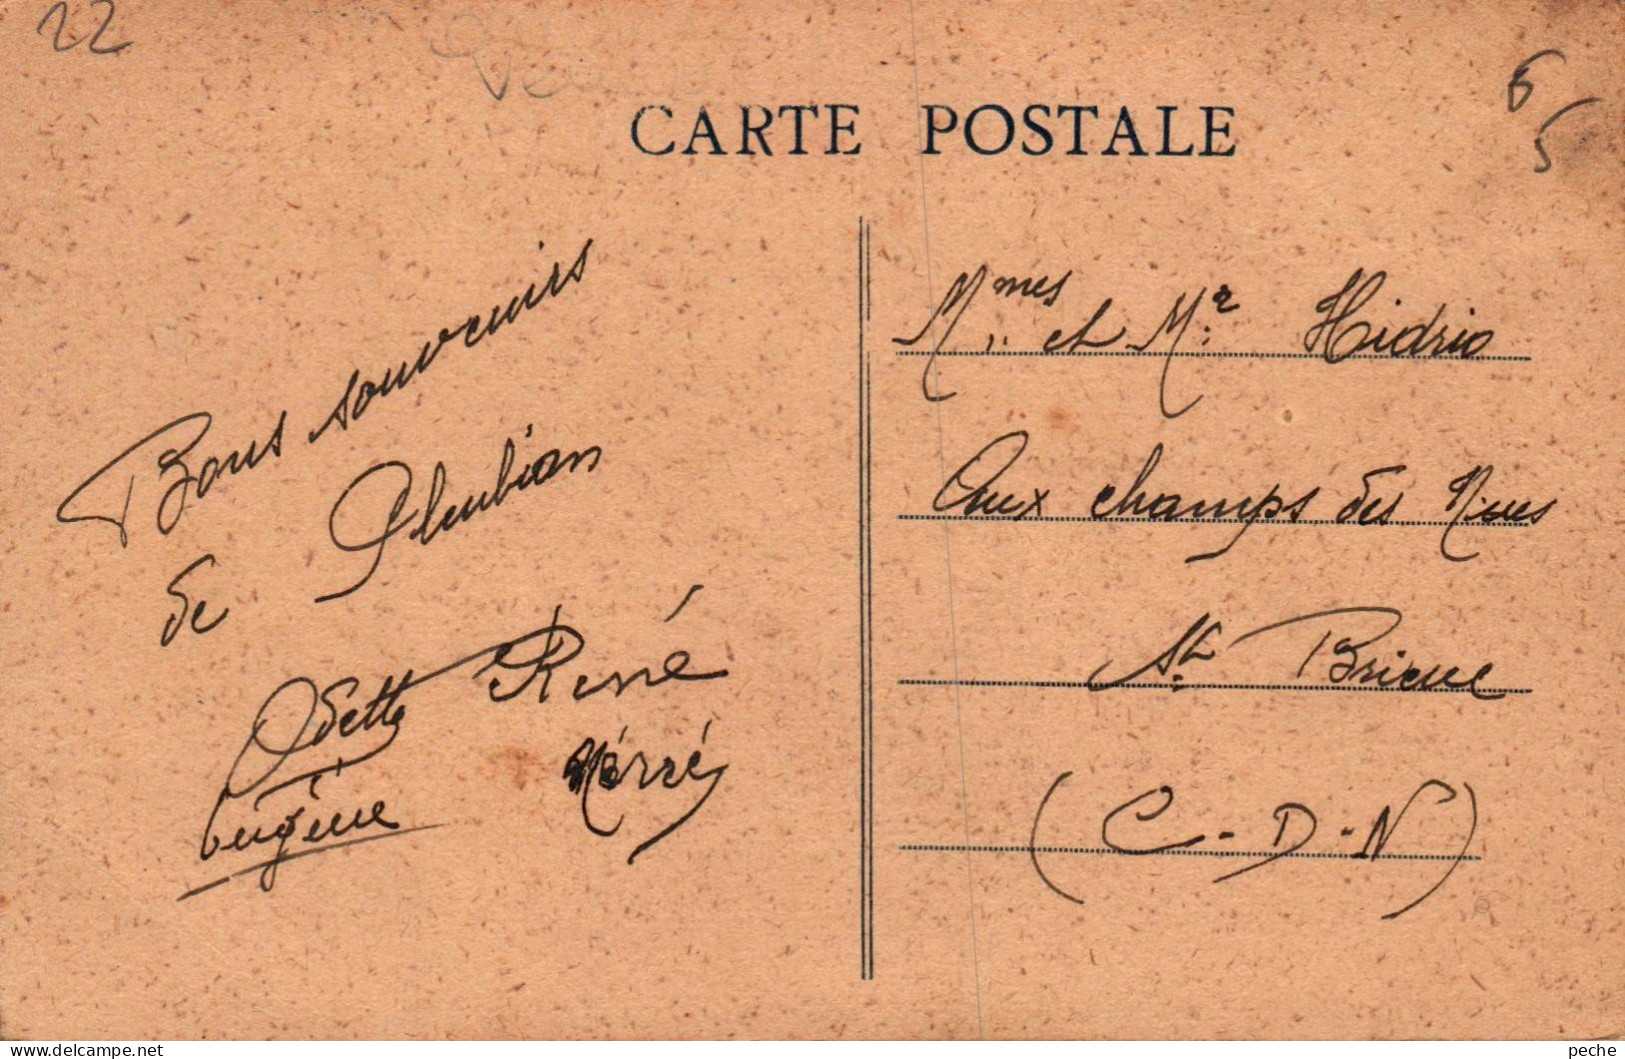 22
CARTE POSTALE
6
5
Bons souvenirs
de Pleubian
Odette René
Eugène
Mmes et Mr Hidrio
Aux champs des
St. Brieuc
(C-D-N)
www.delcampe.net
peche